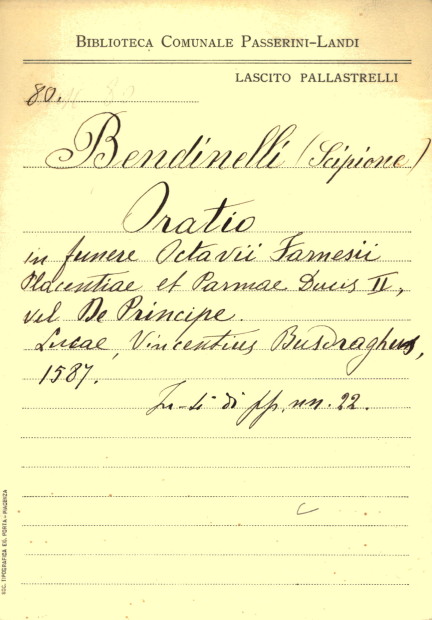 BIBLIOTECA COMUNALE PASSERINI-LANDI
LASCITO PALLASTRELLI
80.
Bendinelli (Scipione)
Oratio
in funere Octavii Farnesii
Placentiae et Parmae Ducis II,
vel De Principe.
Lucae, Vincentius Busdraghus,
1587.
In-4° di pp. nn. 22.
SOC. TIPOGRAFICA ED. PORTA - PIACENZA